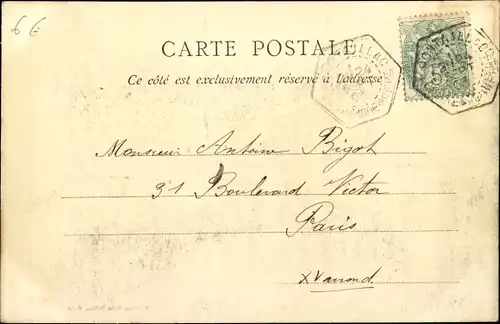 6 €
CARTE POSTALE
Ce côté est exclusivement réservé à l'adresse
Monsieur Antoine Bigot
31 Boulevard Victor
Paris
XV arrond.